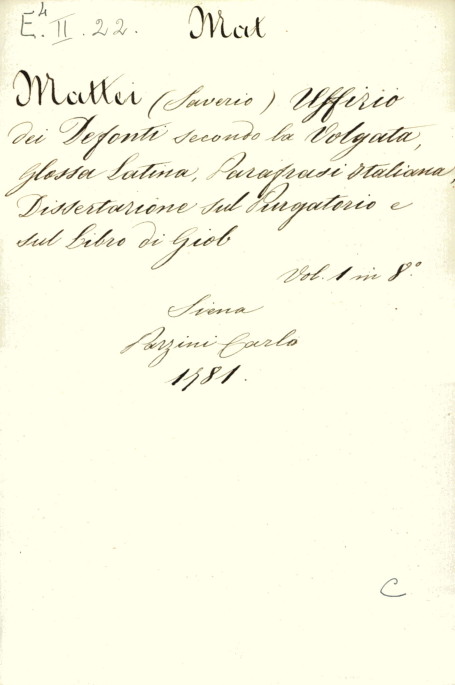 E.4 II. 22. Mat
Mattei (Saverio) Uffizio
dei Defonti secondo la Volgata,
glossa Latina, Parafrasi Italiana,
Dissertazione sul Purgatorio e
sul Libro di Giob
Vol. 1 in 8.º
Siena
Pazzini Carlo
1781.
C